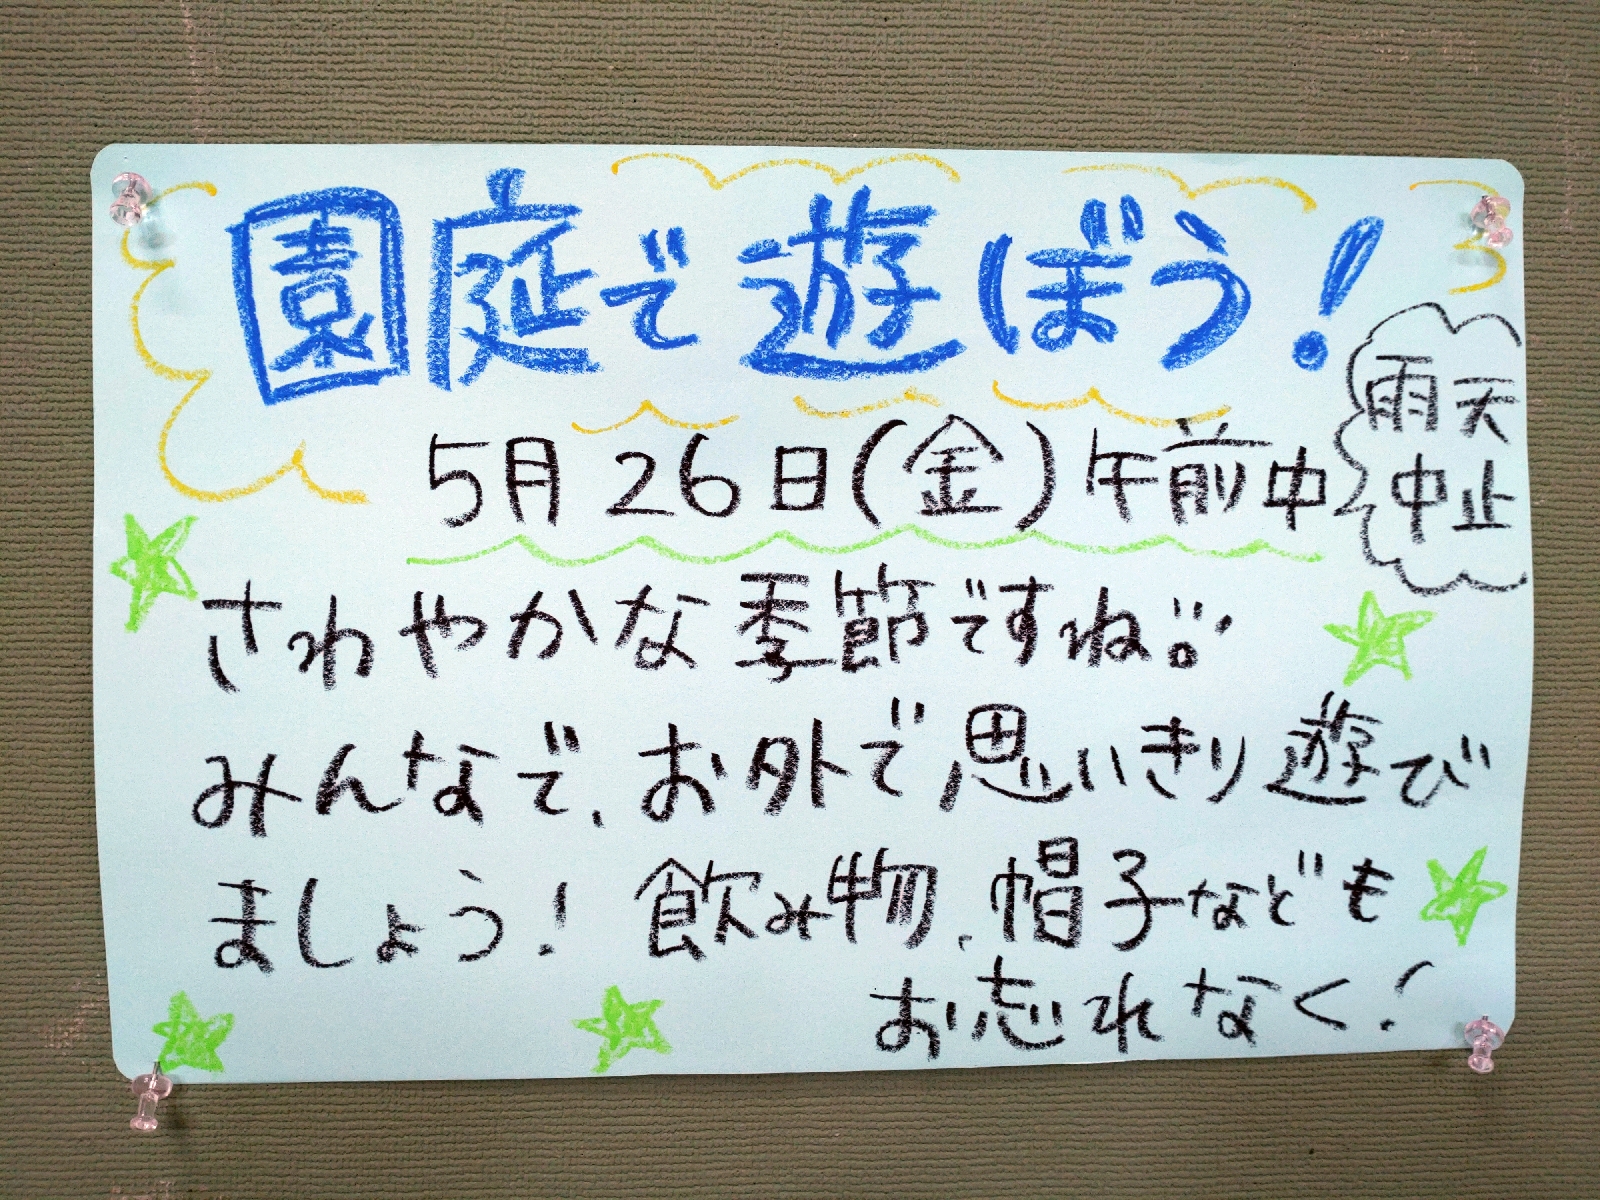 園庭で遊ぼう!
5月26日(金)午前中
雨天
中止
さわやかな季節ですね。
みんなで、お外で思いきり遊び
ましょう! 飲み物、帽子なども
お忘れなく!